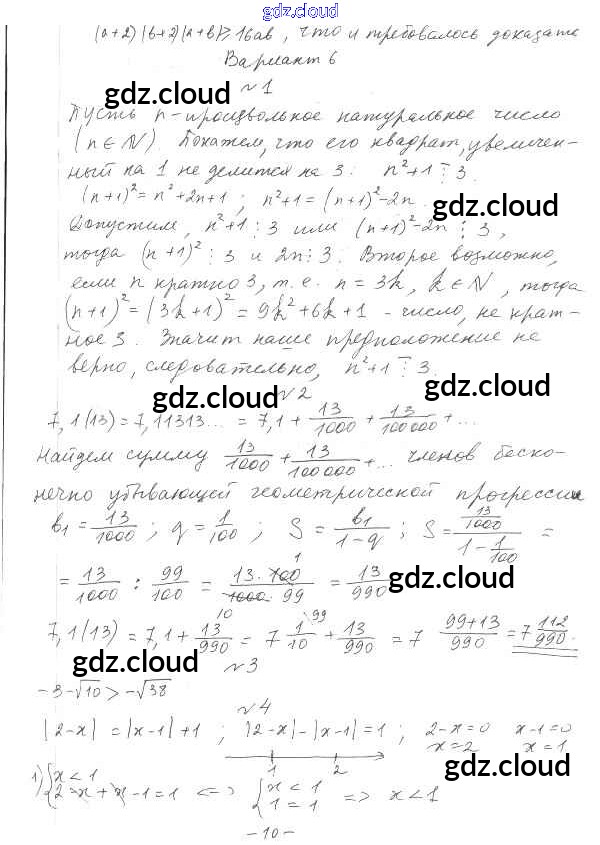 gdz.cloud
(a+2)(b+2)(a+b)≥16ab, что и требовалось доказать
Вариант 6
№1
gdz.cloud
gdz.cloud
Пусть n-произвольное натуральное число
(n∈N). Покажем, что его квадрат, увеличен-
ный на 1 не делится на 3. n²+1 ⋮̅ 3.
(n+1)² = n²+2n+1; n²+1=(n+1)²-2n.
gdz.cloud
Допустим, n²+1 ⋮ 3 или (n+1)²-2n ⋮ 3,
тогда (n+1)² ⋮ 3 и 2n ⋮ 3. Второе возможно,
если n кратно 3, т.е. n = 3k, k∈N, тогда
(n+1)²=(3k+1)²=9k²+6k+1 - число, не крат-
ное 3. Значит наше предположение не
верно, следовательно, n²+1 ⋮̅ 3.
gdz.cloud
gdz.cloud
№2
7,1(13)=7,11313... = 7,1 + 13/1000 + 13/100000 + ...
Найдем сумму 13/1000 + 13/100000 + ... членов беско-
нечно убывающей геометрической прогрессии
b₁ = 13/1000; q = 1/100; S = b₁/(1-q); S = (13/1000)/(1 - 1/100) =
= 13/1000 : 99/100 = 13·100/1000·99 = 13/990
1
10
gdz.cloud
7,1(13) = 7,1 + 13/990 = 7 1/10 + 13/990 = 7 (99+13)/990 = 7 112/990.
99
gdz.cloud
№3
-3-√10 > -√38
№4
|2-x| = |x-1|+1; |2-x|-|x-1|=1; 2-x=0 x-1=0
x=2 x=1
1 2
gdz.cloud
1) {x<1
2-x+x-1=1 <=> {x<1
1=1 => x<1
-10-